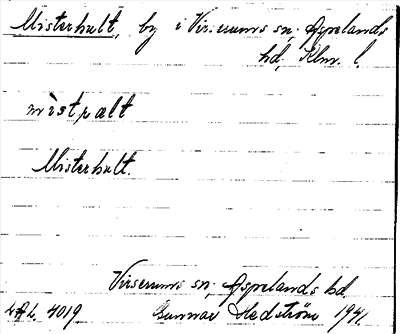 Misterhult, by i Virserums sn, Aspelands
hd, Klm. l.
misthalt
Misterhult.
Virserums sn, Aspelands hd.
4019 Gunnar Hedström 1941.